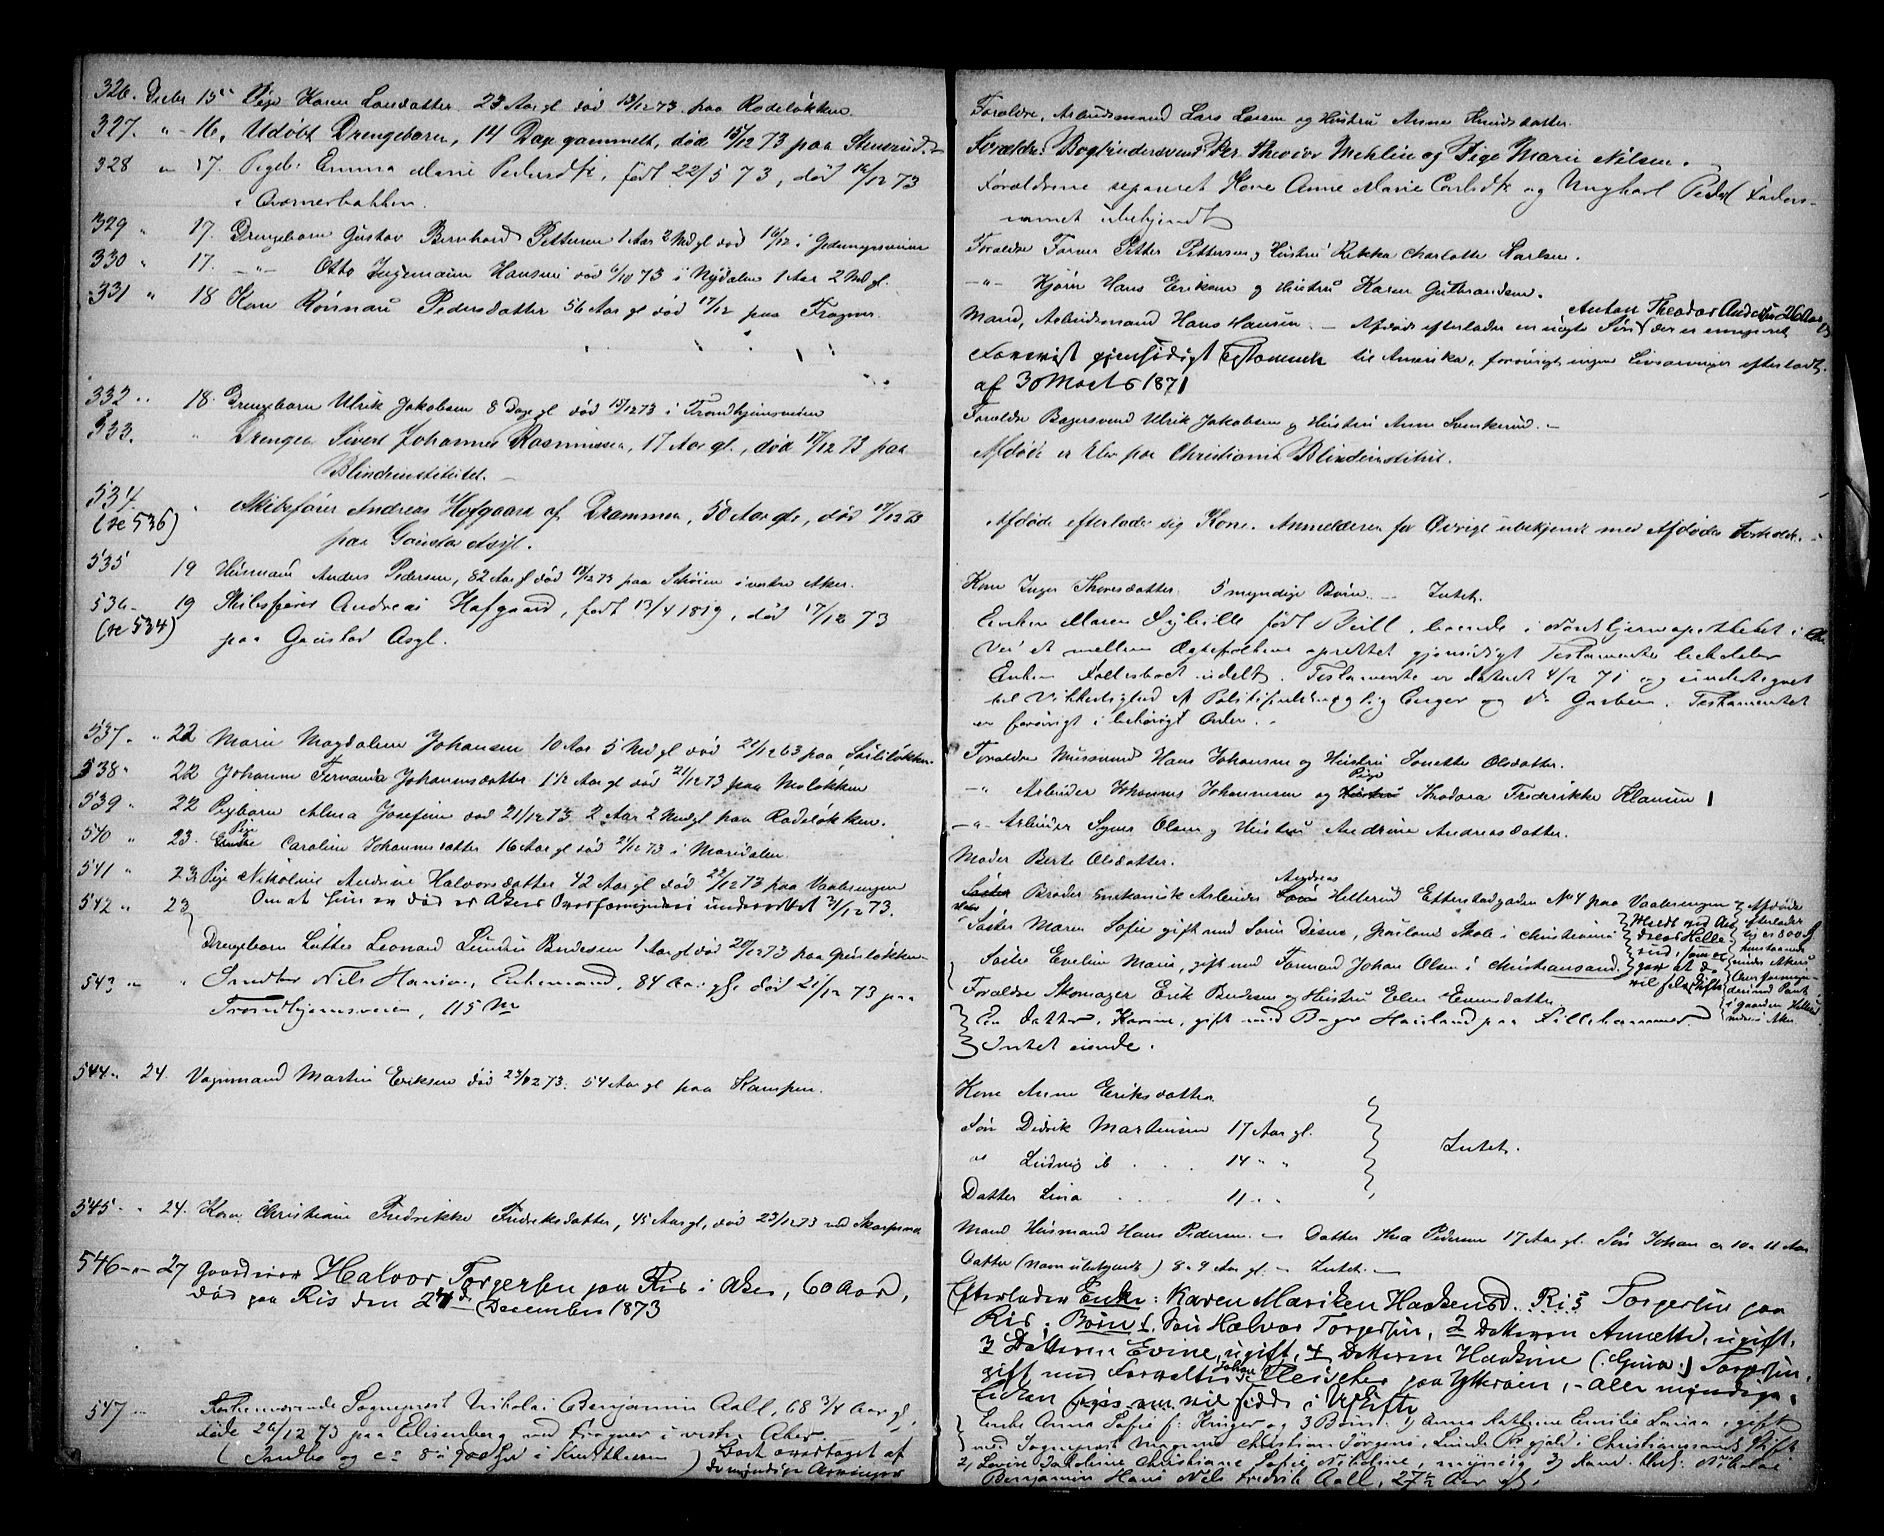 326. Decbr 15 Pige Karen Larsdatter 23 Aar gl død 13/12 73 paa Rodeløkken
327. " - 16, Udøbt Drengebarn, 14 Dage gammelt, død 15/12 73 paa Stensrud.
328 " 17. Pigeb. Emma Marie Pedersdtr, født 22/5 73, død 16/12 73
i
329 " 17. Drengebarn Gustav Bernhard Pettersen 1 Aar 2 Md gl død 16/12 i
330 " 17. -"- Otto Ingemann Hansen død 6/10 73 i Nydalen 1 Aar 2 Md gl.
331 " 18 Kone Rønnau Pedersdatter 56 Aar gl død 17/12 paa Frogner.
332 " 18. Drengebarn Ulrik Jakobsen 8 Dage gl død 15/12 73 i Trondhjemsveien
333. " Drengen Sivert Johannes Rasmussen, 17 Aar gl., død 17/12 73 paa
Blindeinstitutet.
534. " Skibsfører Andreas Hofgaard af Drammen, 50 Aar gl., død 17/12 73
(se 536) paa Gaustad Asyl.
535 19 Husmand Anders Pedersen, 82 Aar gl død 18/12 73 paa Skøien i vestre Aker.
536 - 19 Skibsfører Andreas Hofgaard, født 13/4 1819, død 17/12 73
(se 534) paa Gaustad Asyl.
537. " 22 Marie Magdalene Johansen 10 Aar 5 Md gl død 21/12 63 paa
538 " 22 Johanne Fernanda Johannesdatter 1 1/2 Aar gl død 21/12 73 paa Moløkken
539 " 22 Pigebarn Alma Josefine død 21/12 73 2 Aar 2 Md gl paa Rodeløkken.
540 " 23. Pige Caroline Johannesdatter 16 Aar gl død 21/12 73 i Maridalen.
541 " 23. Pige Nikoline Andrine Halvorsdatter 42 Aar gl død 22/12 73 paa Vaalerengen
Om at hun er død er Akers Overformynderi underrettet 31/12 73.
542 " 23 Drengebarn Lotter Leonard Berdesen 1 Aar gl død 20/12 73 paa Grünløkken
543 " " Snedker Nils Hansen, Enkemand, 84 Aar gl. død 21/12 73 paa
Trondhjemsveien, 115
544 " 24. Vognmand Martin Eriksen død 23/12 73. 54 Aar gl paa Kampen.
545 " 24. Kone Christiane Fredrikke Fredriksdatter, 45 Aar gl, død 23/12 73 ved Skarpsno
546 - " - 27 Gaardmand Halvor Torgersen paa Ris i Aker, 60 Aar,
død paa Ris den 24de December 1873
547 Forhenværende Sogneprest Nikolai Benjamin Aall, 68 3/4 Aar gl,
døde 26/12 73 paa Elisenberg ved Frogner i vestre Aker.
( Indbo og ca 8 a 900 Spd i ) Boet overtaget af
de myndige Arvinger
Forældre, Arbeidsmand Lars Larsen og Hustru Anne Knudsdatter.
Forældre: Bogbindersvend Per Theodor Mehlin og Pige Marie Nilsen.
Forældrene separeret Kone Anne Marie Carlsdtr og Ungkarl Peder Faders-
navnet ubekjendt
Forældre Former Petter Pettersen og Hustru Rikka Charlotte Karlsen.
-"- Kjører Hans Eriksen og Hustru Karen Gulbrandsen.
Anton Theodor Andersen 26 Aar
Mand, Arbeidsmand Hans Hansen. - Afdøde efterlader en uægte Søn der er emigreret
Forevist gjensidigt Testament til Amerika, forøvrigt ingen Livsarvinger efterladt.
af 30 Marts 1871
Forældre Bagersvend Ulrik Jakobsen og Hustru Anne Svenkerud. -
Afdøde er Elev paa Christiania Blindeinstitut.
Afdøde efterlader sig Kone. Anmelderen for Øvrigt ubekjendt med Afdødes Forhold.
Kone Inger Thoresdatter 5 myndige Børn. Intet.
Enken Maren Sybille født Bull, boende i Nordstjerneapotheket i
Ved et mellem Ægtefolkene oprettet gjensidigt Testamente beholder
Enken Fællesboet udelt. Testamentet er dateret 4/2 71 og undertegnet
til Vitterlighed af Politifuldmægtig Unger og Dr Garben. Testamentet
er forøvrigt i behørigt Orden.
Forældre Mursvend Hans Johansen og Hustru Jonette Olsdatter.
-" Arbeider Johannes Johannesen og Pige Theodora Frederikke Klausen
-"- Arbeider Syver Olsen og Hustru Andrine Andreasdatter.
Moder Berte Olsdatter.
Broder mekanisk Arbeider Andreas Hellerud Etterstadgaden No 4 paa Vaalerengen
Søster Maren Sofie gift med Søren Disne, Skole i Christiania
Søster Eveline Marie, gift med Formand Johan Olsen i Christianssand.
Afdøde efterlader sig 800 Spd
henstaaende under Akers Overformynderi
mod Pant i gaarden Hellerud
Forældre Skomager Erik Berdesen og Hustru Elen Evensdatter.
En Datter, Karine, gift med Bager Hauland paa Lillehammer.
Intet eiende.
Kone Anne Eriksdatter
Søn Didrik Martinsen 17 Aar gl.
" Ludvig ib 14 " "
Datter Lina 11 " "
Intet.
Mand Husmand Hans Pedersen. - Datter Thea Pedersen 17 Aar gl. Søn Johan ca 10 a 11 Aar
Datter (navn ubekjendt) 8 a 9 Aar gl. - Intet. -
Efterlader Enke: Karen Mariken Haakensd. Ris Torgersen paa
Ris. Børn 1, Søn Halvor Torgersen, 2 Datteren Annette, ugift,
3 Datteren Evine, ugift, 4 Datteren Haakine (: Gina :) Torgersen,
gift med Forvalter Johan Fleischer paa Ytterøen, - alle myndige.
Enken vil sidde i Uskifte
Enke Anna Sofie f: Krüger og 3 Børn: 1) Anna Kathrine Emilie Lovisa, gift
med Sogneprest Magnus Christian Jørgens, i Christianssands Stift
2) Lovise Jakobine Christiane Sofie Nikoline, myndig, 3) Kand. theol. Nikolai
Benjamin Hans Nils Fredrik Aall, 27 1/2 Aar gl.